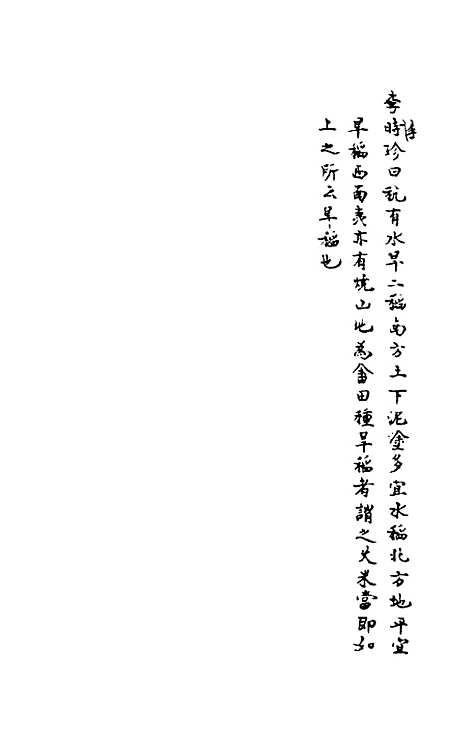 李時珍曰秔有水旱二稻南方土下泥塗多宜水稻北方地平宜
旱稻西南夷亦有燒山地為畬田種旱稻者謂之火米當即如
上之所云旱稻也